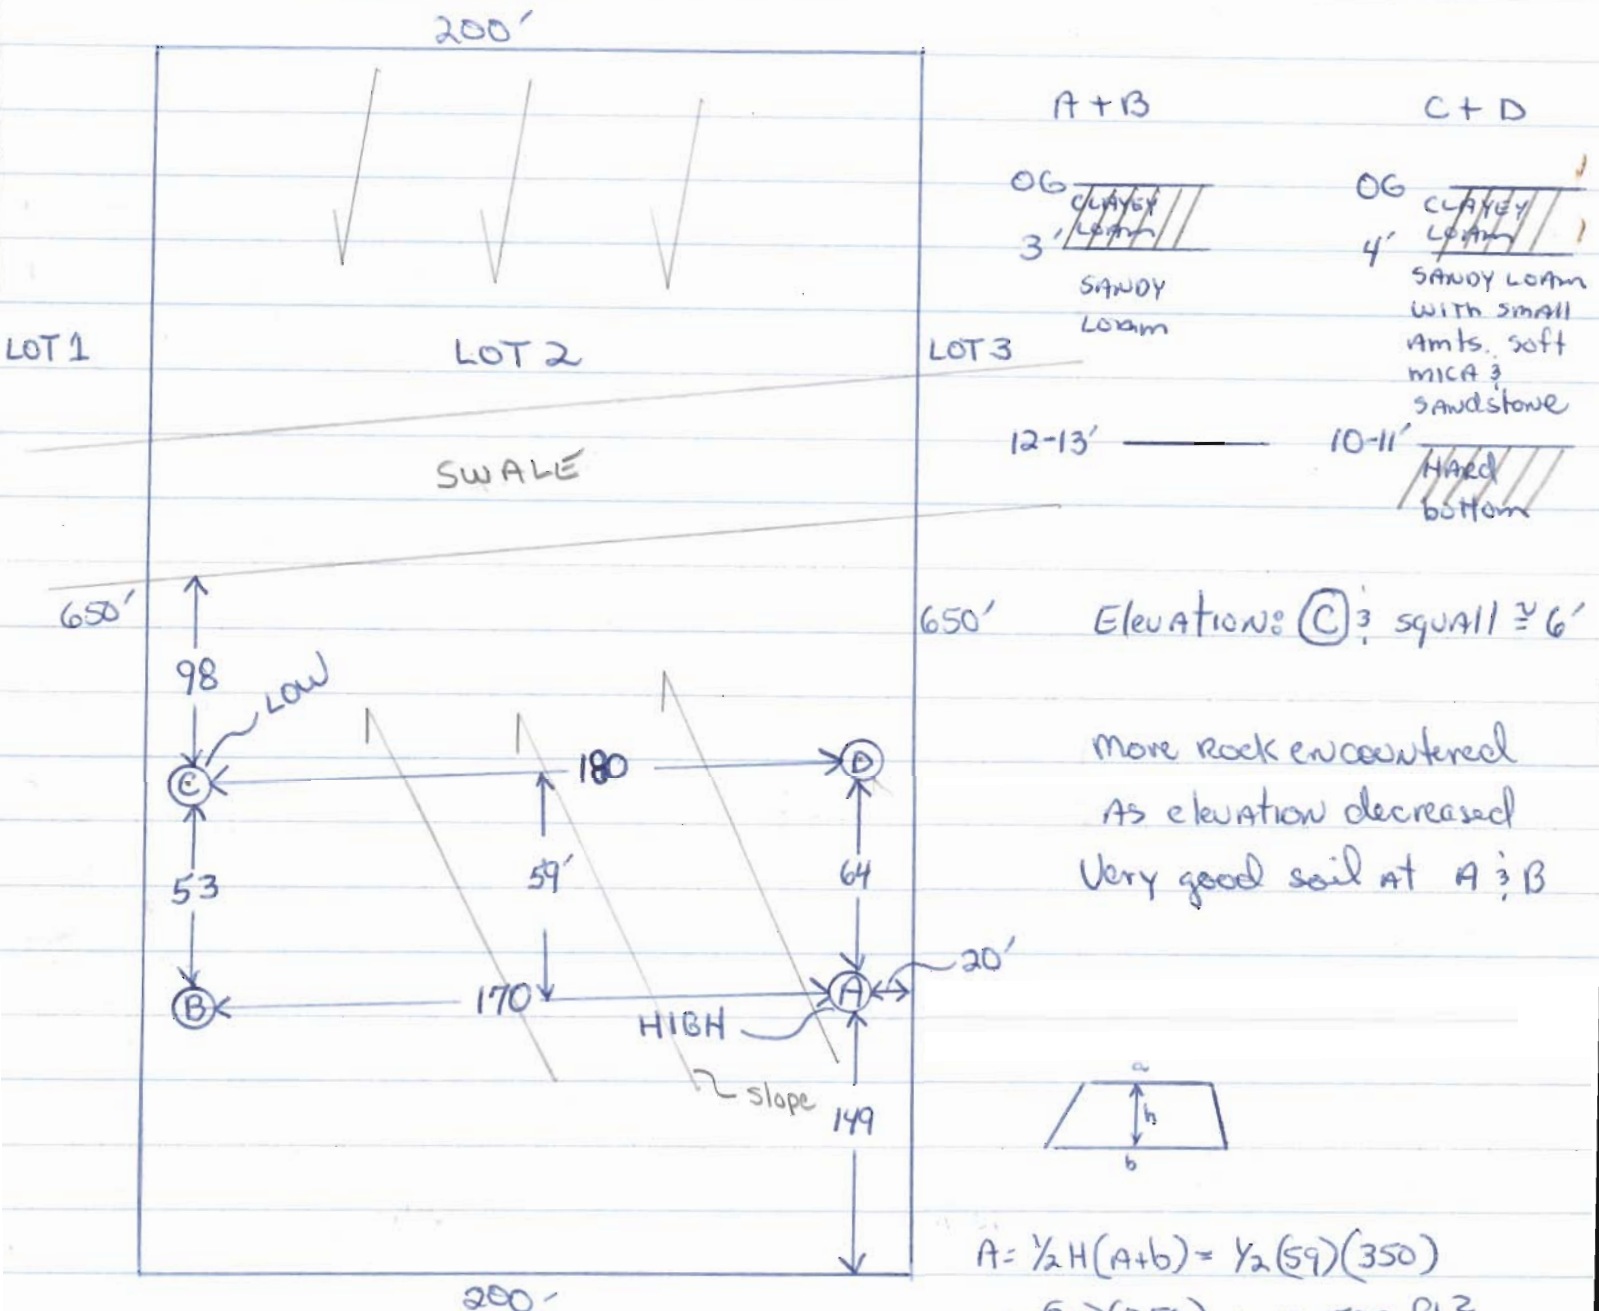 200'
A + B
C + D
OG
CLAYEY
LOAM
3'
SANDY
Loam
12-13'
OG
CLAYEY
LOAM
4'
SANDY LOAM
with small
Amts. soft
mica &
SANdstone
10-11'
HArd
bottom
LOT 1
LOT 2
LOT 3
SWALE
650'
650'
Elevation: C & squall ≅ 6'
98
LOW
More Rock encountered
As elevation decreased
Very good soil At A & B
C
180
D
53
59'
64
20'
B
170
A
HIGH
slope
149
a
h
b
A = 1/2 H(A+b) = 1/2 (59)(350)
200'